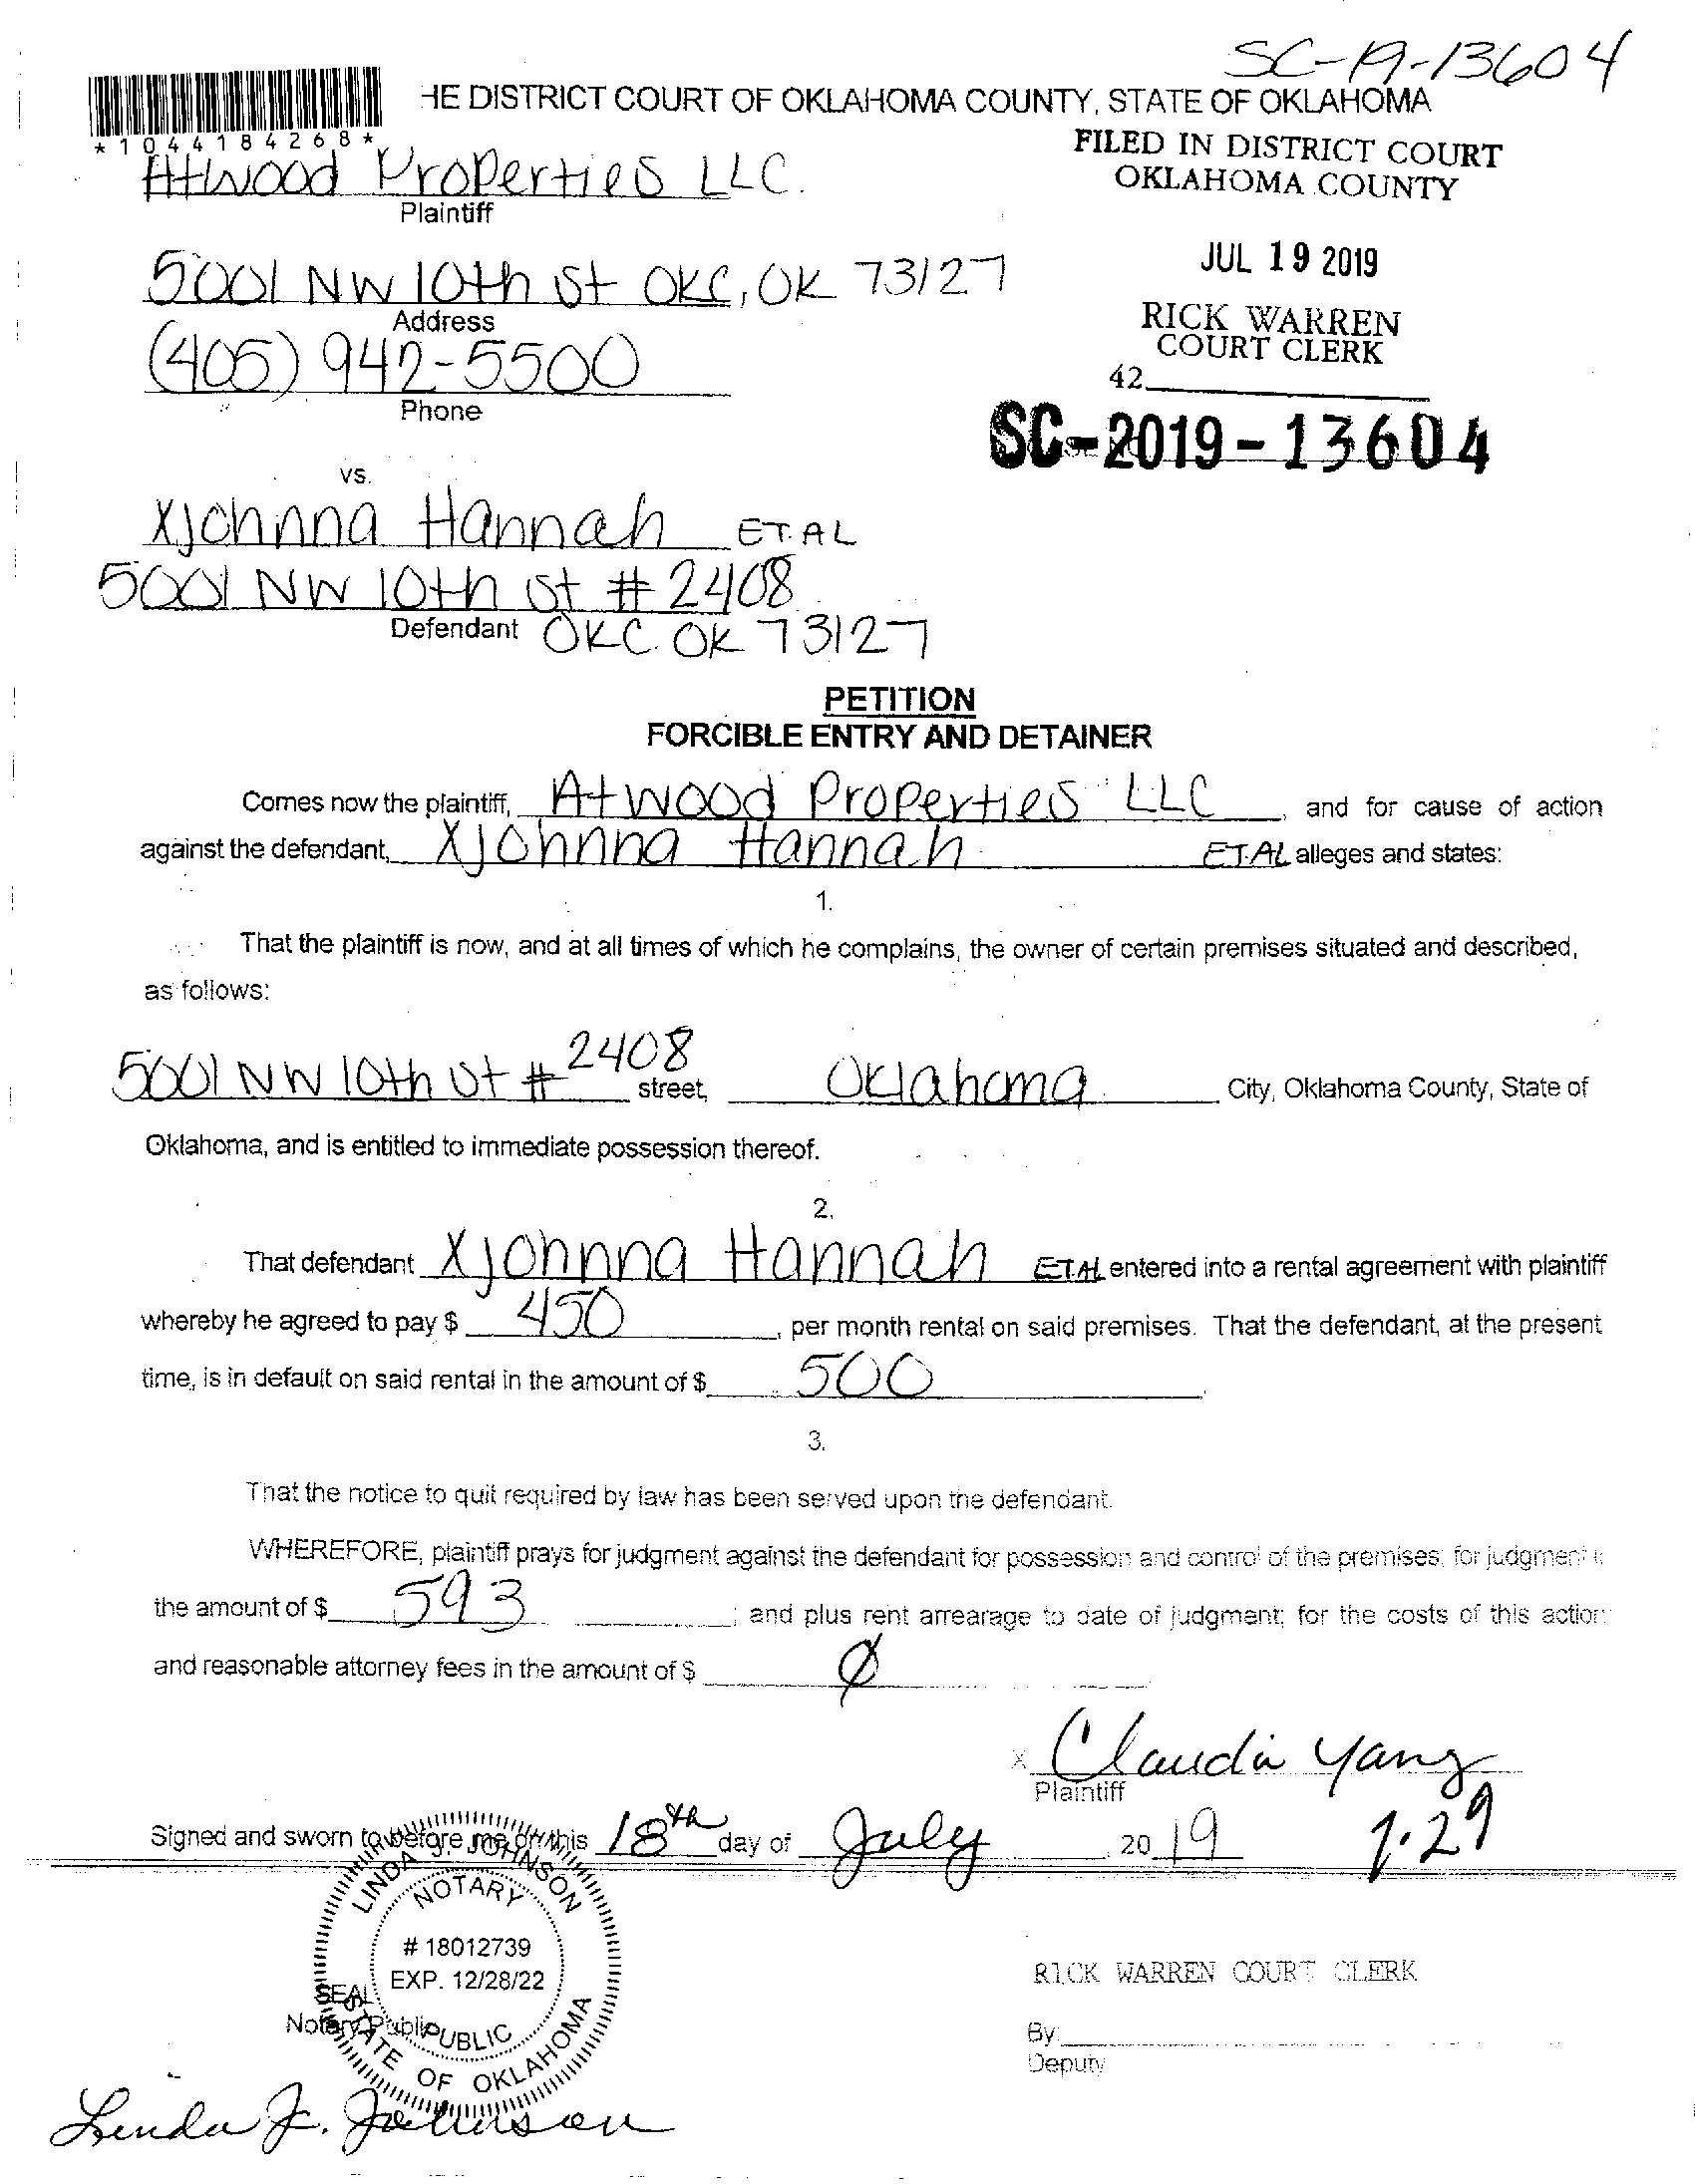 SC-19-13604
HE DISTRICT COURT OF OKLAHOMA COUNTY, STATE OF OKLAHOMA
*1044184268*
FILED IN DISTRICT COURT
OKLAHOMA COUNTY
Atwood Properties LLC.
Plaintiff
JUL 19 2019
5001 NW 10th St OKC, OK 73127
Address
RICK WARREN
COURT CLERK
(405) 942-5500
Phone
42
SC-2019-13604
vs.
Xjohnna Hannah ET.AL
5001 NW 10th St # 2408
Defendant OKC. OK 73127
PETITION
FORCIBLE ENTRY AND DETAINER
Comes now the plaintiff, Atwood Properties LLC, and for cause of action
against the defendant, Xjohnna Hannah ET.AL alleges and states:
1.
That the plaintiff is now, and at all times of which he complains, the owner of certain premises situated and described,
as follows:
5001 NW 10th St # 2408 street, Oklahoma City, Oklahoma County, State of
Oklahoma, and is entitled to immediate possession thereof.
2.
That defendant Xjohnna Hannah ET.AL entered into a rental agreement with plaintiff
whereby he agreed to pay $ 450, per month rental on said premises. That the defendant, at the present
time, is in default on said rental in the amount of $ 500.
3.
That the notice to quit required by law has been served upon the defendant.
WHEREFORE, plaintiff prays for judgment against the defendant for possession and control of the premises; for judgment
the amount of $ 593; and plus rent arrearage to date of judgment; for the costs of this action
and reasonable attorney fees in the amount of $ Ø
x Claudia Yang
Plaintiff
Signed and sworn to before me on this 18th day of July, 2019
7.29
LINDA J. JOHNSON
NOTARY
# 18012739
EXP. 12/28/22
PUBLIC
STATE OF OKLAHOMA
SEAL
Notary Public
RICK WARREN COURT CLERK
By:
Deputy
Linda J. Johnson